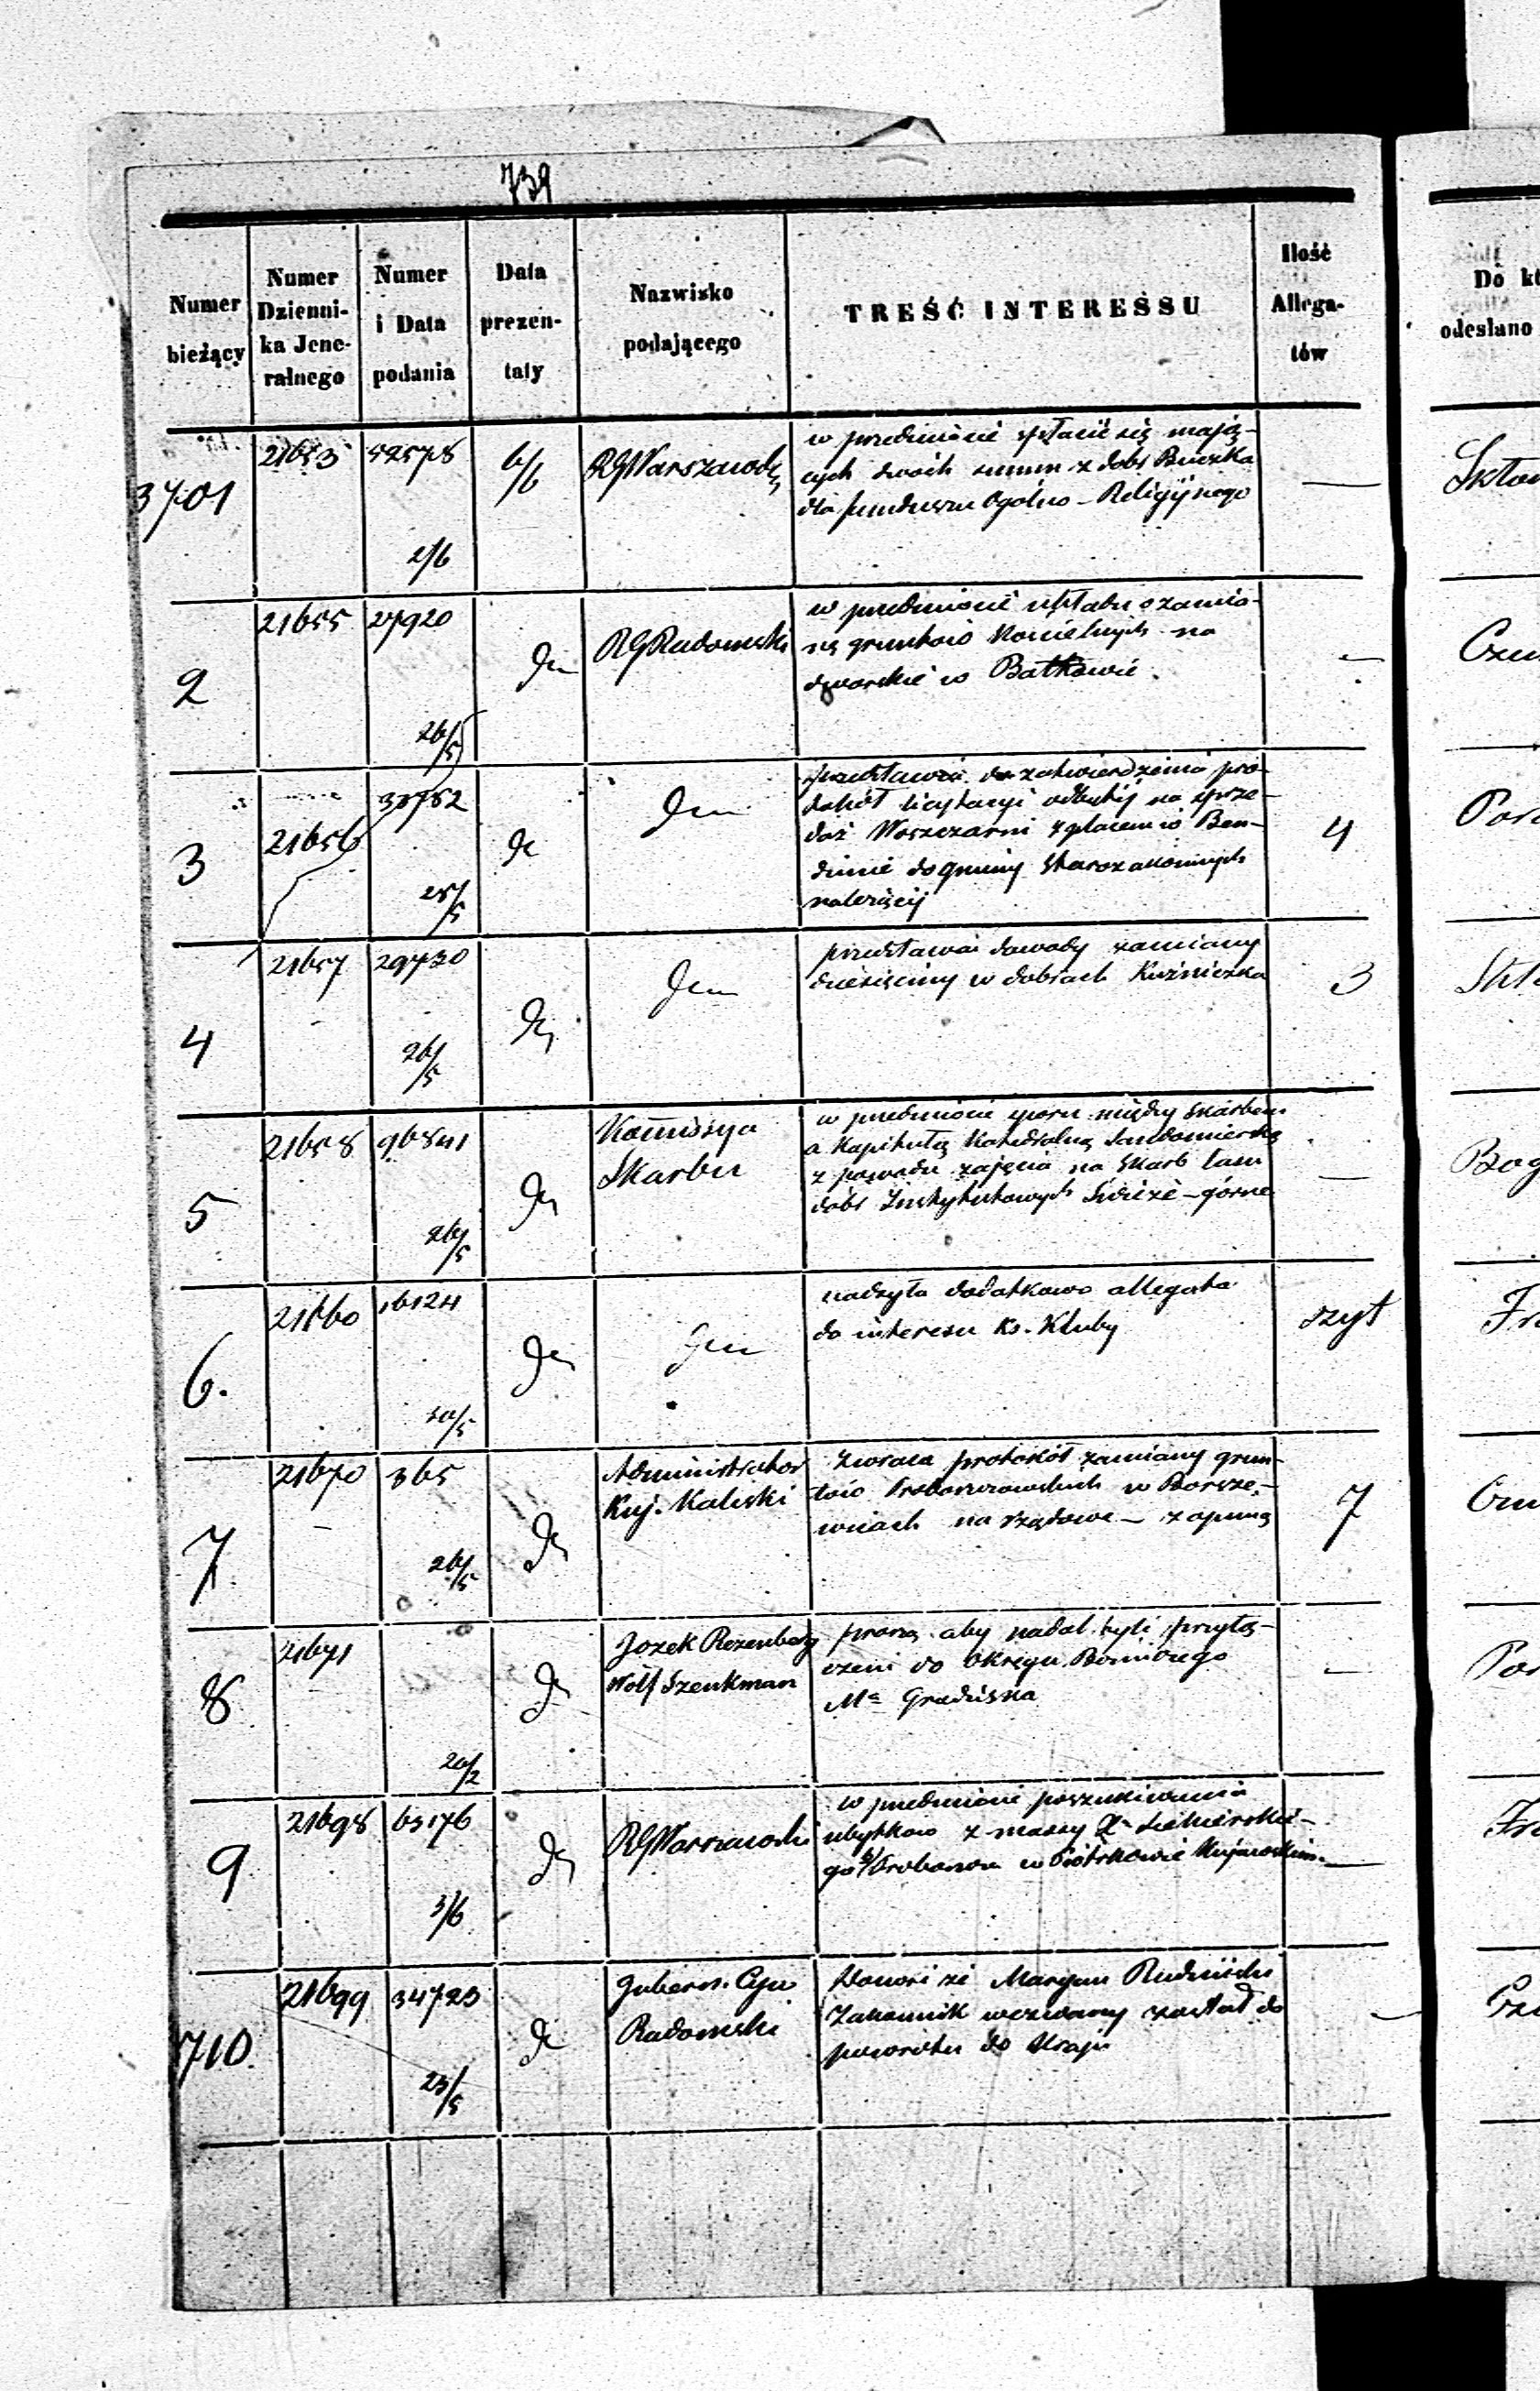 739
Numer bieżący | Numer Dzienni-ka Jene-ralnego | Numer i Data podania | Data prezen-taty | Nazwisko podającego | TREŚĆ INTERESSU | Ilość Allega-tów | Do odesłano
3701 | 21653 | 52578 2/6 | 6/6 | RGWarszawski
w przedmiocie spłacić się mają-
cych dwóch summ z dóbr Buczka
dla funduszu Ogólno-Religijnego
—
2 | 21655 | 27920 26/5 | dn | RGRadomski
w przedmiocie układu o zamia-
nę gruntów kościelnych na
dworskie w Batkowie
—
3 | 21656 | 30752 25/5 | dn | dn
przedstawia do zatwierdzenia pro-
tokół licytacyi odbytej na sprze-
daż Woszczarni z placem w Ben-
dinie do gminy Starozakonnych
należącej
4
4 | 21657 | 29730 26/5 | dn | dn
przedstawia dowody zamiany
dziesięciny w dobrach Kuźniczka
3
5 | 21658 | 96841 26/5 | dn
Kommissya
Skarbu
w przedmiocie sporu między Skarbem
a Kapitułą Katedralną Sandomierską
z powodu zajęcia na Skarb lasu
dóbr Instytutowych Świerże-górne
—
6. | 21660 | 16124 30/5 | dn | dn
nadsyła dodatkowo allegata
do interesu Ks. Kluby
szyt
7 | 21670 | 365 26/5 | dn
Administrator
Kuj. Kaliski
zwraca protokół zamiany grun-
tów Proboszczowskich w Borsze-
wicach na rządowe – z opinią
7
8 | 21671 | 20/2 | dn
Jozek Rozenberg
Wolf Szenkman
proszą aby nadal byli przyłą-
czeni do Okręgu Bożniczego
Ma Gradziska
—
9 | 21698 | 65176 3/6 | dn | RGWarszawski
w przedmiocie poszukiwania
ubytków z massy X.
go Proboszcza w Piotrkowie Kujawskim
—
710 | 21699 | 34723 23/5 | dn
Gubern. Cyw.
Radomski
donosi że Maryan Rudnicki
Zakonnik wezwany został do
powrotu do Kraju
—